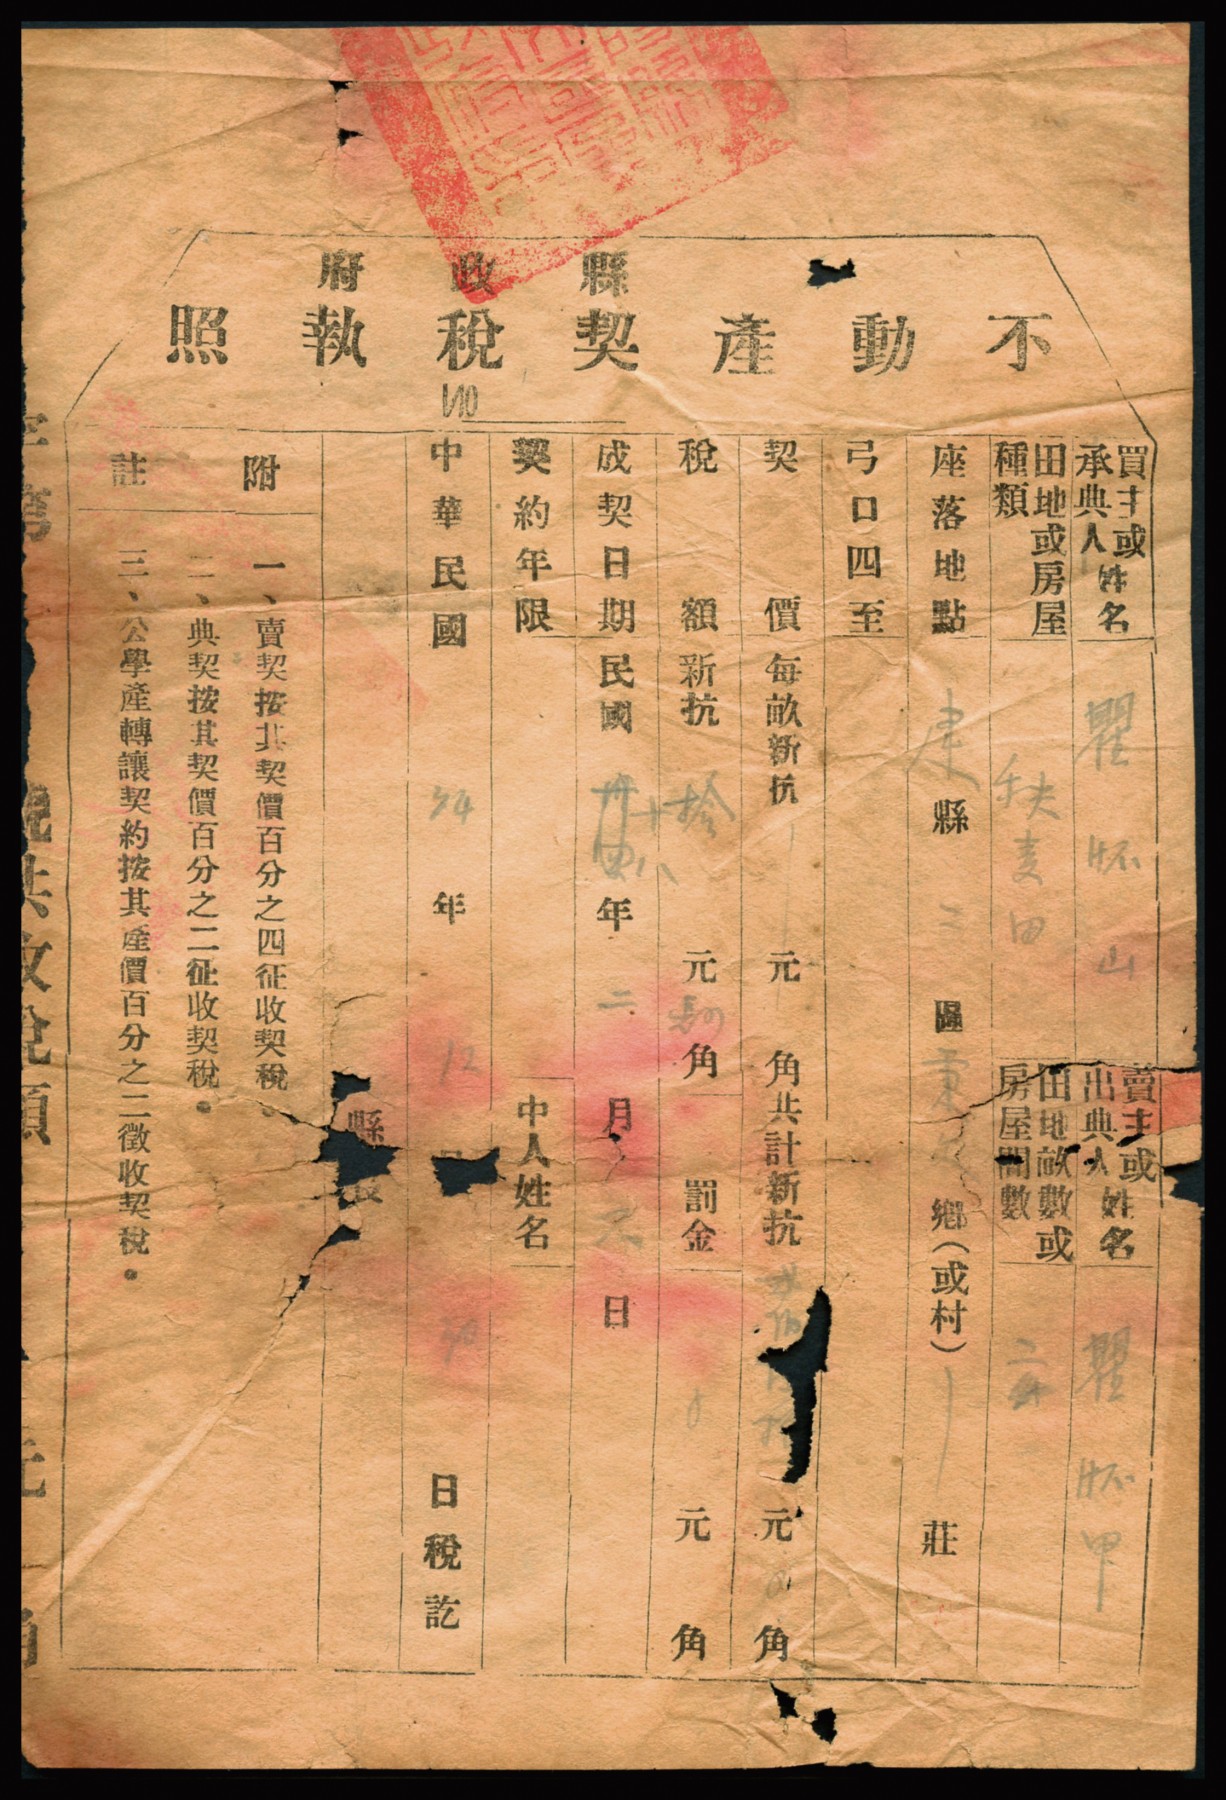 縣政府
不動產契稅執照
NO
買主或承典人姓名 瞿怀山 賣主或出典人姓名 瞿怀甲
田地或房屋種類 秧麦田 田地畝數或房屋間數 二
座落地點 建縣 三 區 東 鄉(或村) 莊
弓口四至
契價 每畝新抗 元 角共計新抗 元 角
稅額 新抗 拾 元 角 罰金 元 角
成契日期 民國 年 二 月 日
契約年限 中人姓名
中華民國 34 年 12 月 30 日稅訖
縣長
附註
一、賣契按其契價百分之四征收契稅。
二、典契按其契價百分之二征收契稅。
三、公學產轉讓契約按其產價百分之二徵收契稅。
字第 稅共收稅額 元 角